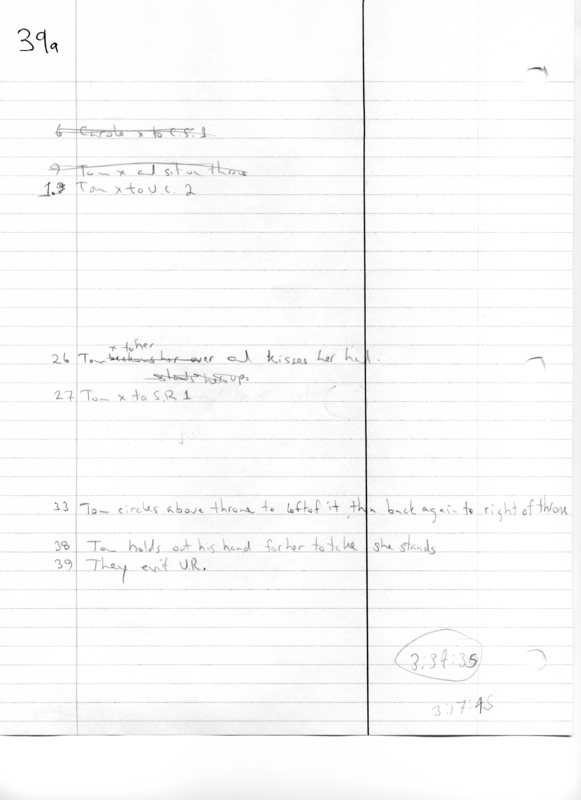 39a
6 Carole x to C.S. 1
9 Tom x ad sit on throne
1.9 Tom x to U C. 2
x to her
26 Tom beckons her over ad kisses her hd.
stands her up.
27 Tom x to S.R 1
33 Tom circles above throne to left of it, then back again to right of throne
38 Tom holds out his hand for her to tche she stands
39 They exit U.R.
3:34:35
3:17:45